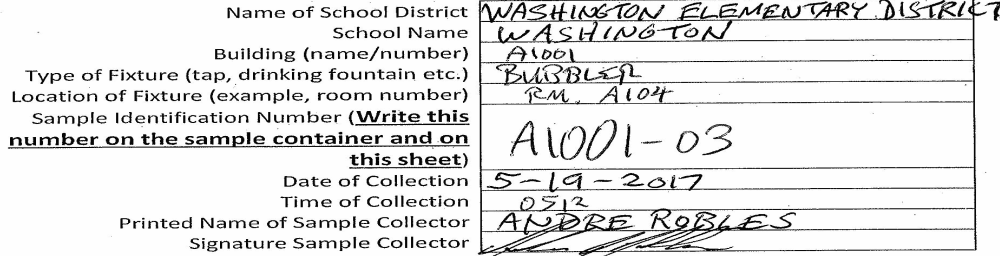 Name of School District WASHINGTON ELEMENTARY DISTRICT
School Name WASHINGTON
Building (name/number) A1001
Type of Fixture (tap, drinking fountain etc.) BUBBLER
Location of Fixture (example, room number) RM. A104
Sample Identification Number (Write this
number on the sample container and on
this sheet) A1001-03
Date of Collection 5-19-2017
Time of Collection 0512
Printed Name of Sample Collector ANDRE ROBLES
Signature Sample Collector